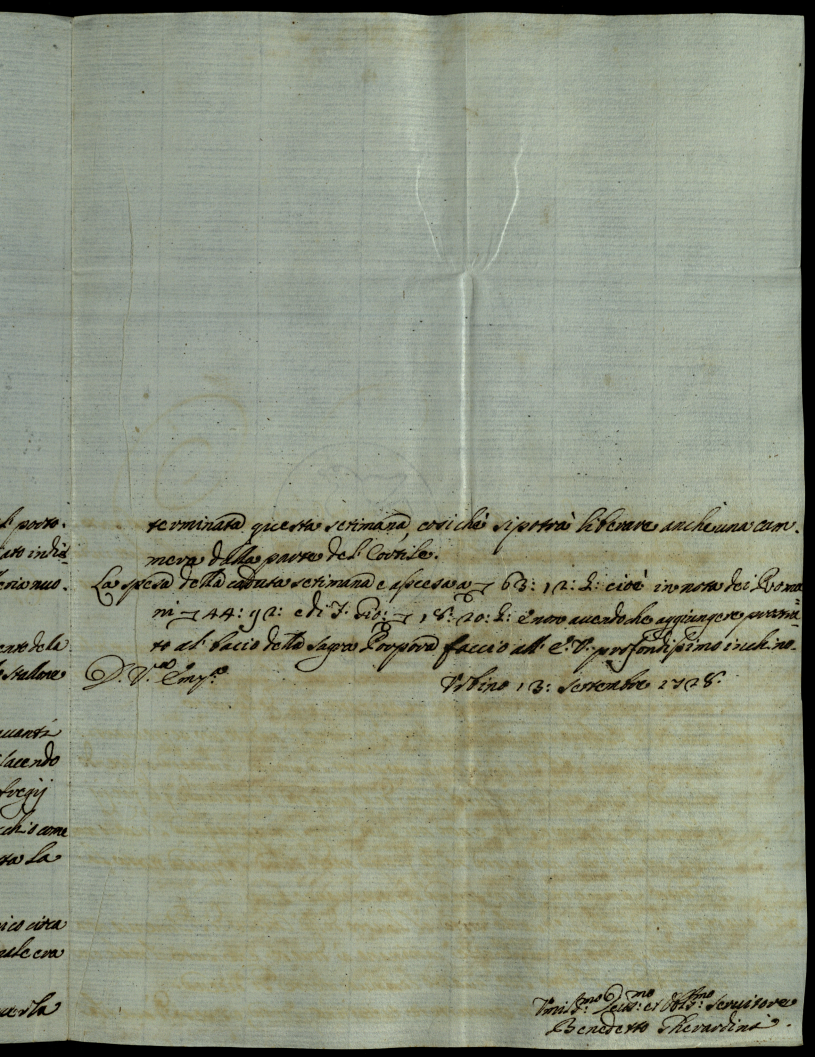 l' porto.
cato indi=
nuo.
ento de la
Stallone
quanti
facendo
fregij
come
ta La
ico circa
era
La
terminata questa setimana, cosi che si potrà liberare anche una cam=
mera dalla parte del Cortile.
La spesa della caduta setimana e ascesa a 63: 12: 2: cioè in nota dei Roma=
ni 44: 92: e di S. Gio: 18: 20: 2: e non avendo che aggiungere prostra=
to al bacio della Sagra Porpora faccio all' E. V. profondissimo inchino.
D. V. Em.za Urbino 13: Settembre 1728.
Umil.mo Dev.mo et Obl.mo Servitore
Benedetto Gherardini.